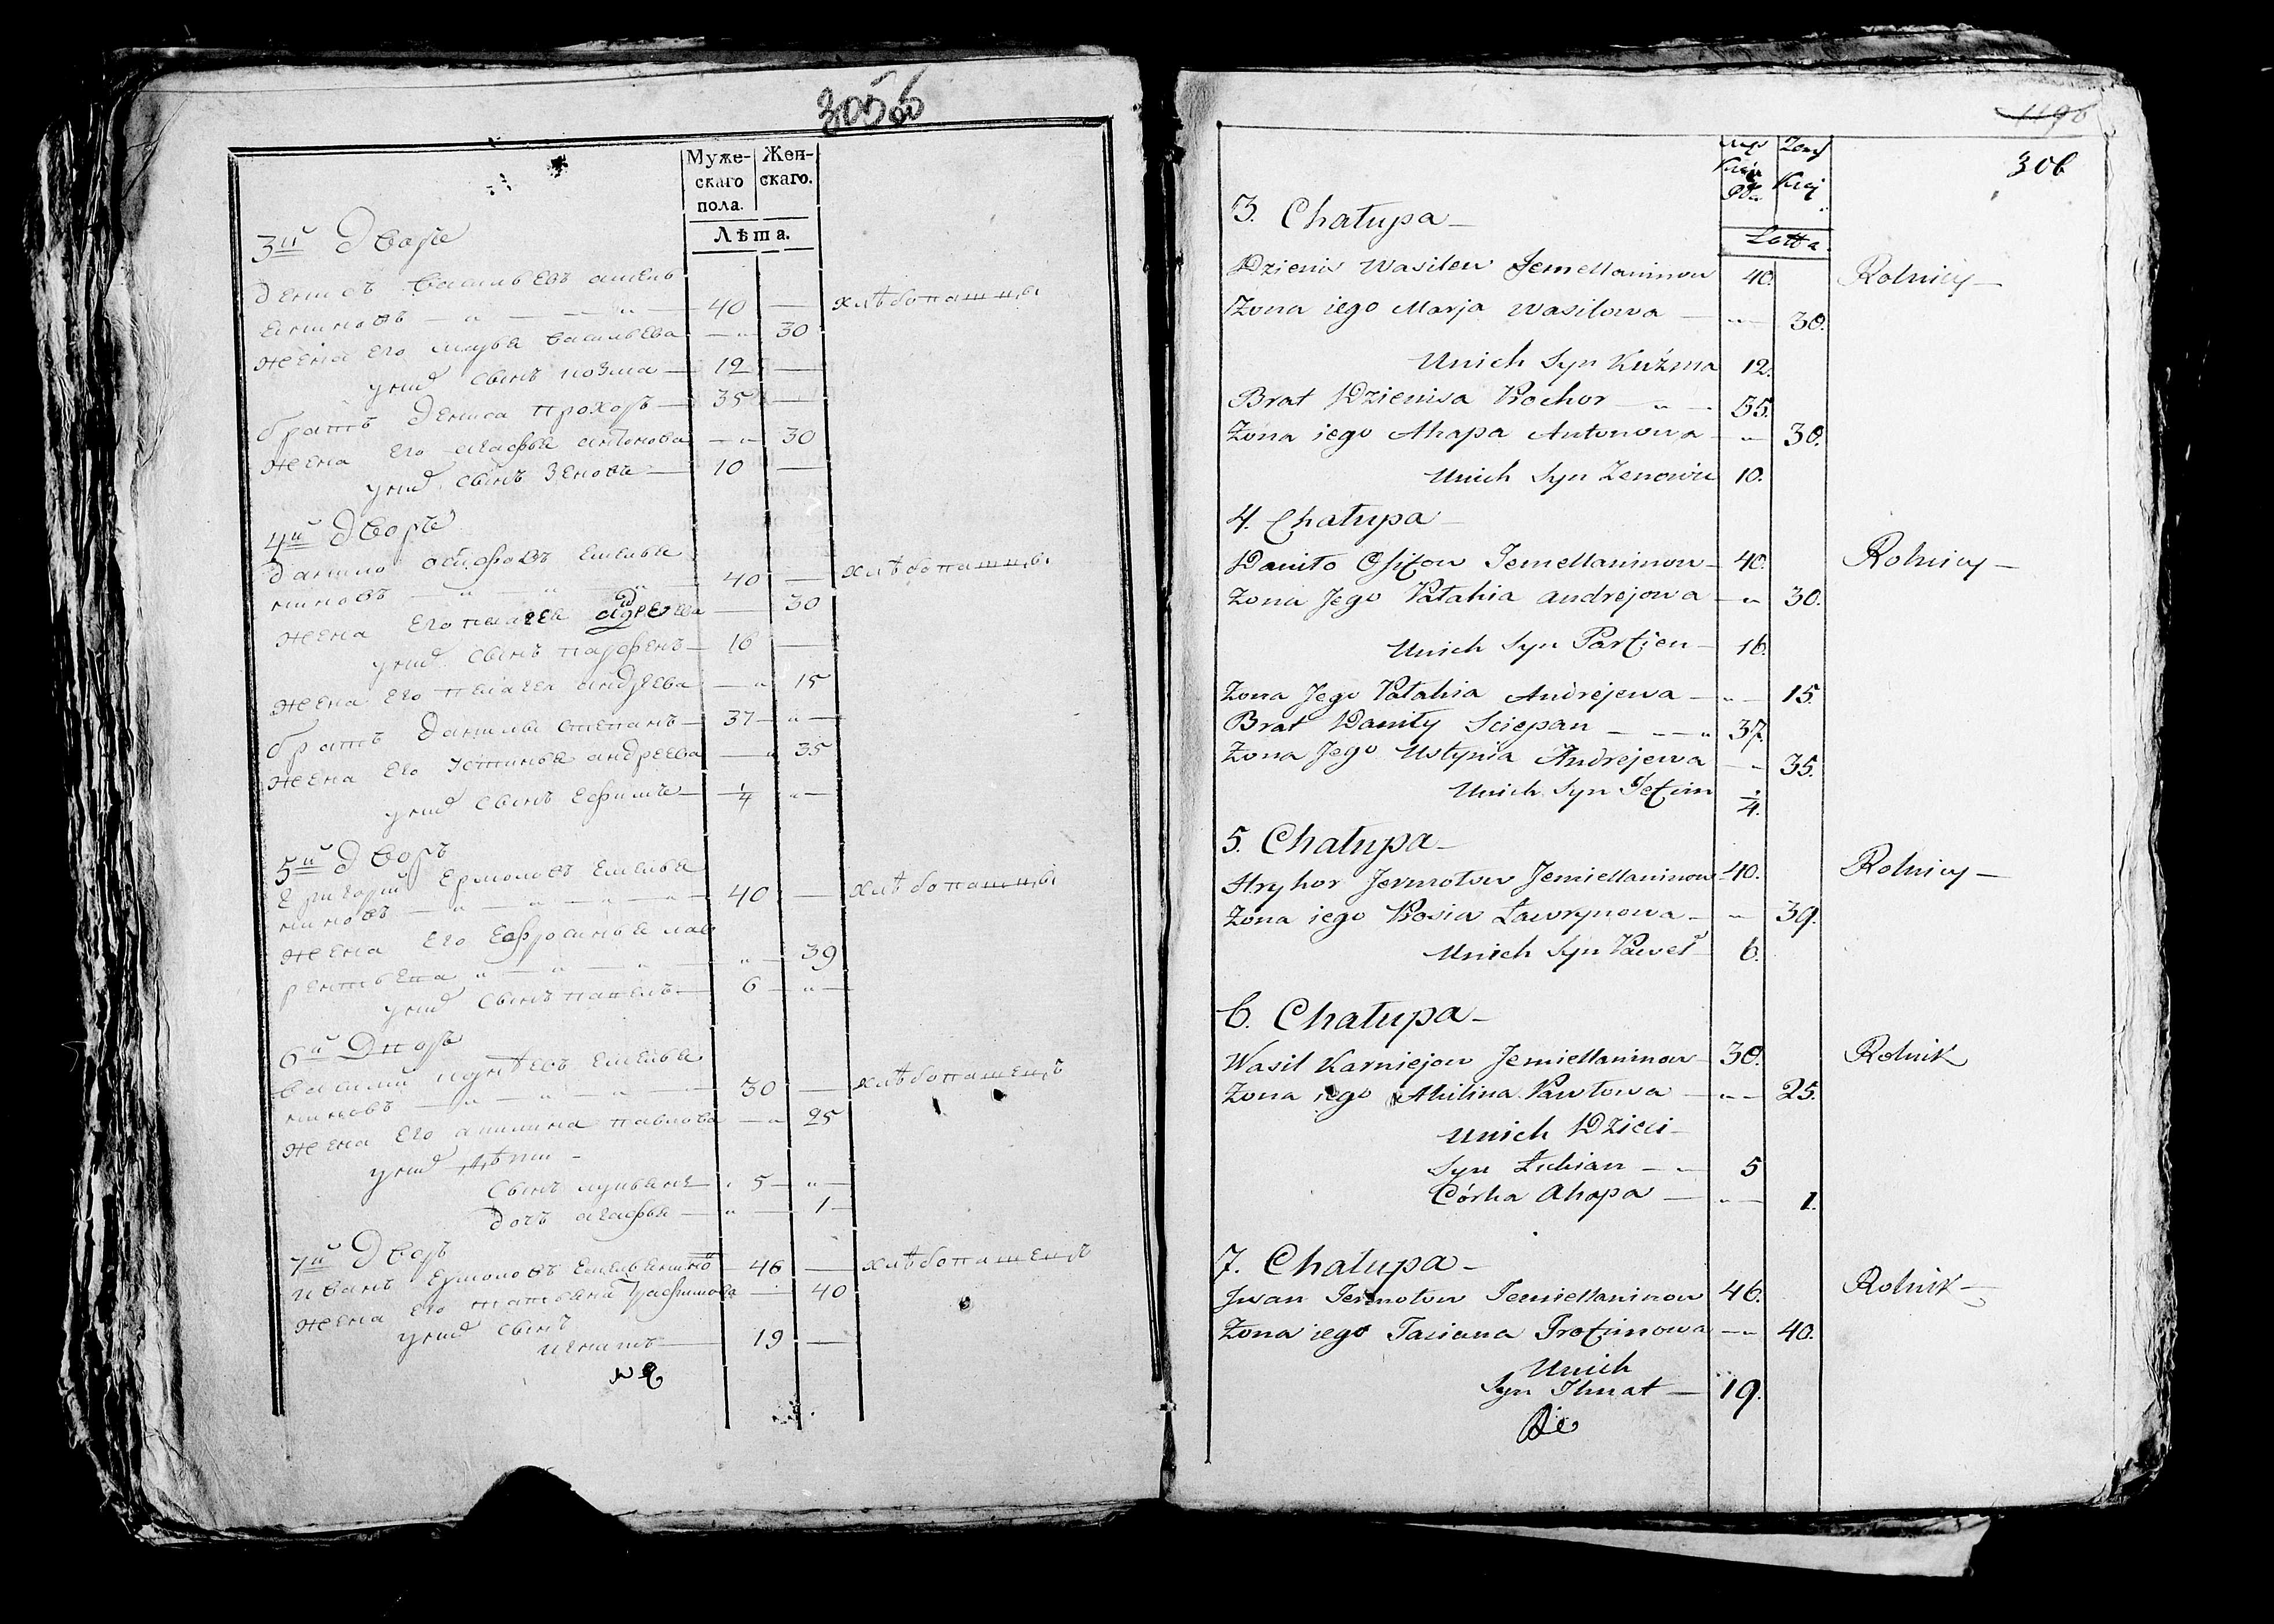 305 б
Муже-
скаго
пола.
Жен-
скаго.
Лѣта.
3й Дворъ
Денисъ Васильевъ
40 — хлѣбопашцы
жена его марья васильева — 30
унид сынъ козма — 12 —
братъ дениса прохоръ — 35 —
жена его агафья антонова — 30
унид сынъ Зеновъ — 10 —
4й Дворъ
данило осифовъ емелья
ниновъ — 40 — хлѣбопашцы
жена его пелагея андреева — 30
унид сынъ парфенъ — 16 —
жена его пелагея андреева — 15
братъ данилы степанъ — 37 —
жена его устинья андреева — 35
унид сынъ ефимъ — 1/4 —
5й Дворъ
Григорий Ермоловъ емелья
ниновъ — 40 — хлѣбопашцы
жена его ефросинья лав
рентьева — 39
унид сынъ павелъ — 6 —
6й Дворъ
василий корнѣевъ емелья
ниновъ — 30 — хлѣбопашецъ
жена его акилина павлова — 25
унид дѣти —
сынъ лукьянъ — 5 —
дочь агафья — 1
7й Дворъ
иванъ ермоловъ емельянино — 46 — хлѣбопашецъ
жена его татьяна трафимова — 40
унид сынъ
игнатъ — 19 —
1196
306
Latta
3. Chałupa —
Dzienis Wasilew Jemellaninow 40. Rolnicy —
Zona iego Marja Wasilowa — 30.
Unich Syn Kuźma 12.
Brat Dzienisa Prochor — 35.
Zona iego Ahapa Antonowa — 30.
Unich Syn Zenowiu 10.
4. Chałupa —
Daniło Osifow Jemellaninow — 40. Rolnicy —
Zona Jego Pałahia andrejowa — 30.
Unich Syn Parfien — 16.
Zona Jego Pałahia Andrejewa — 15.
Brat Daniły Sciepan — 37.
Zona Jego Ustynia Andrejewa — 35.
Unich Syn Jefim 1/4.
5. Chałupa —
Hryhor Jermołow Jemiellaninow — 40. Rolnicy —
Zona iego Prosia Ławrynowa — 39.
Unich Syn Paweł — 6.
6. Chałupa —
Wasil Karniejow Jemiellaninow — 30. Rolnik
Zona iego Akilina Pawłowa — 25.
Unich Dzieci —
Syn Łukian — 5
Córka Ahapa — 1.
7. Chałupa —
Jwan Jermołow Jemiellaninow 46. Rolnik —
Zona iego Taciana Trofimowa — 40.
Unich
Syn Ihnat — 19.